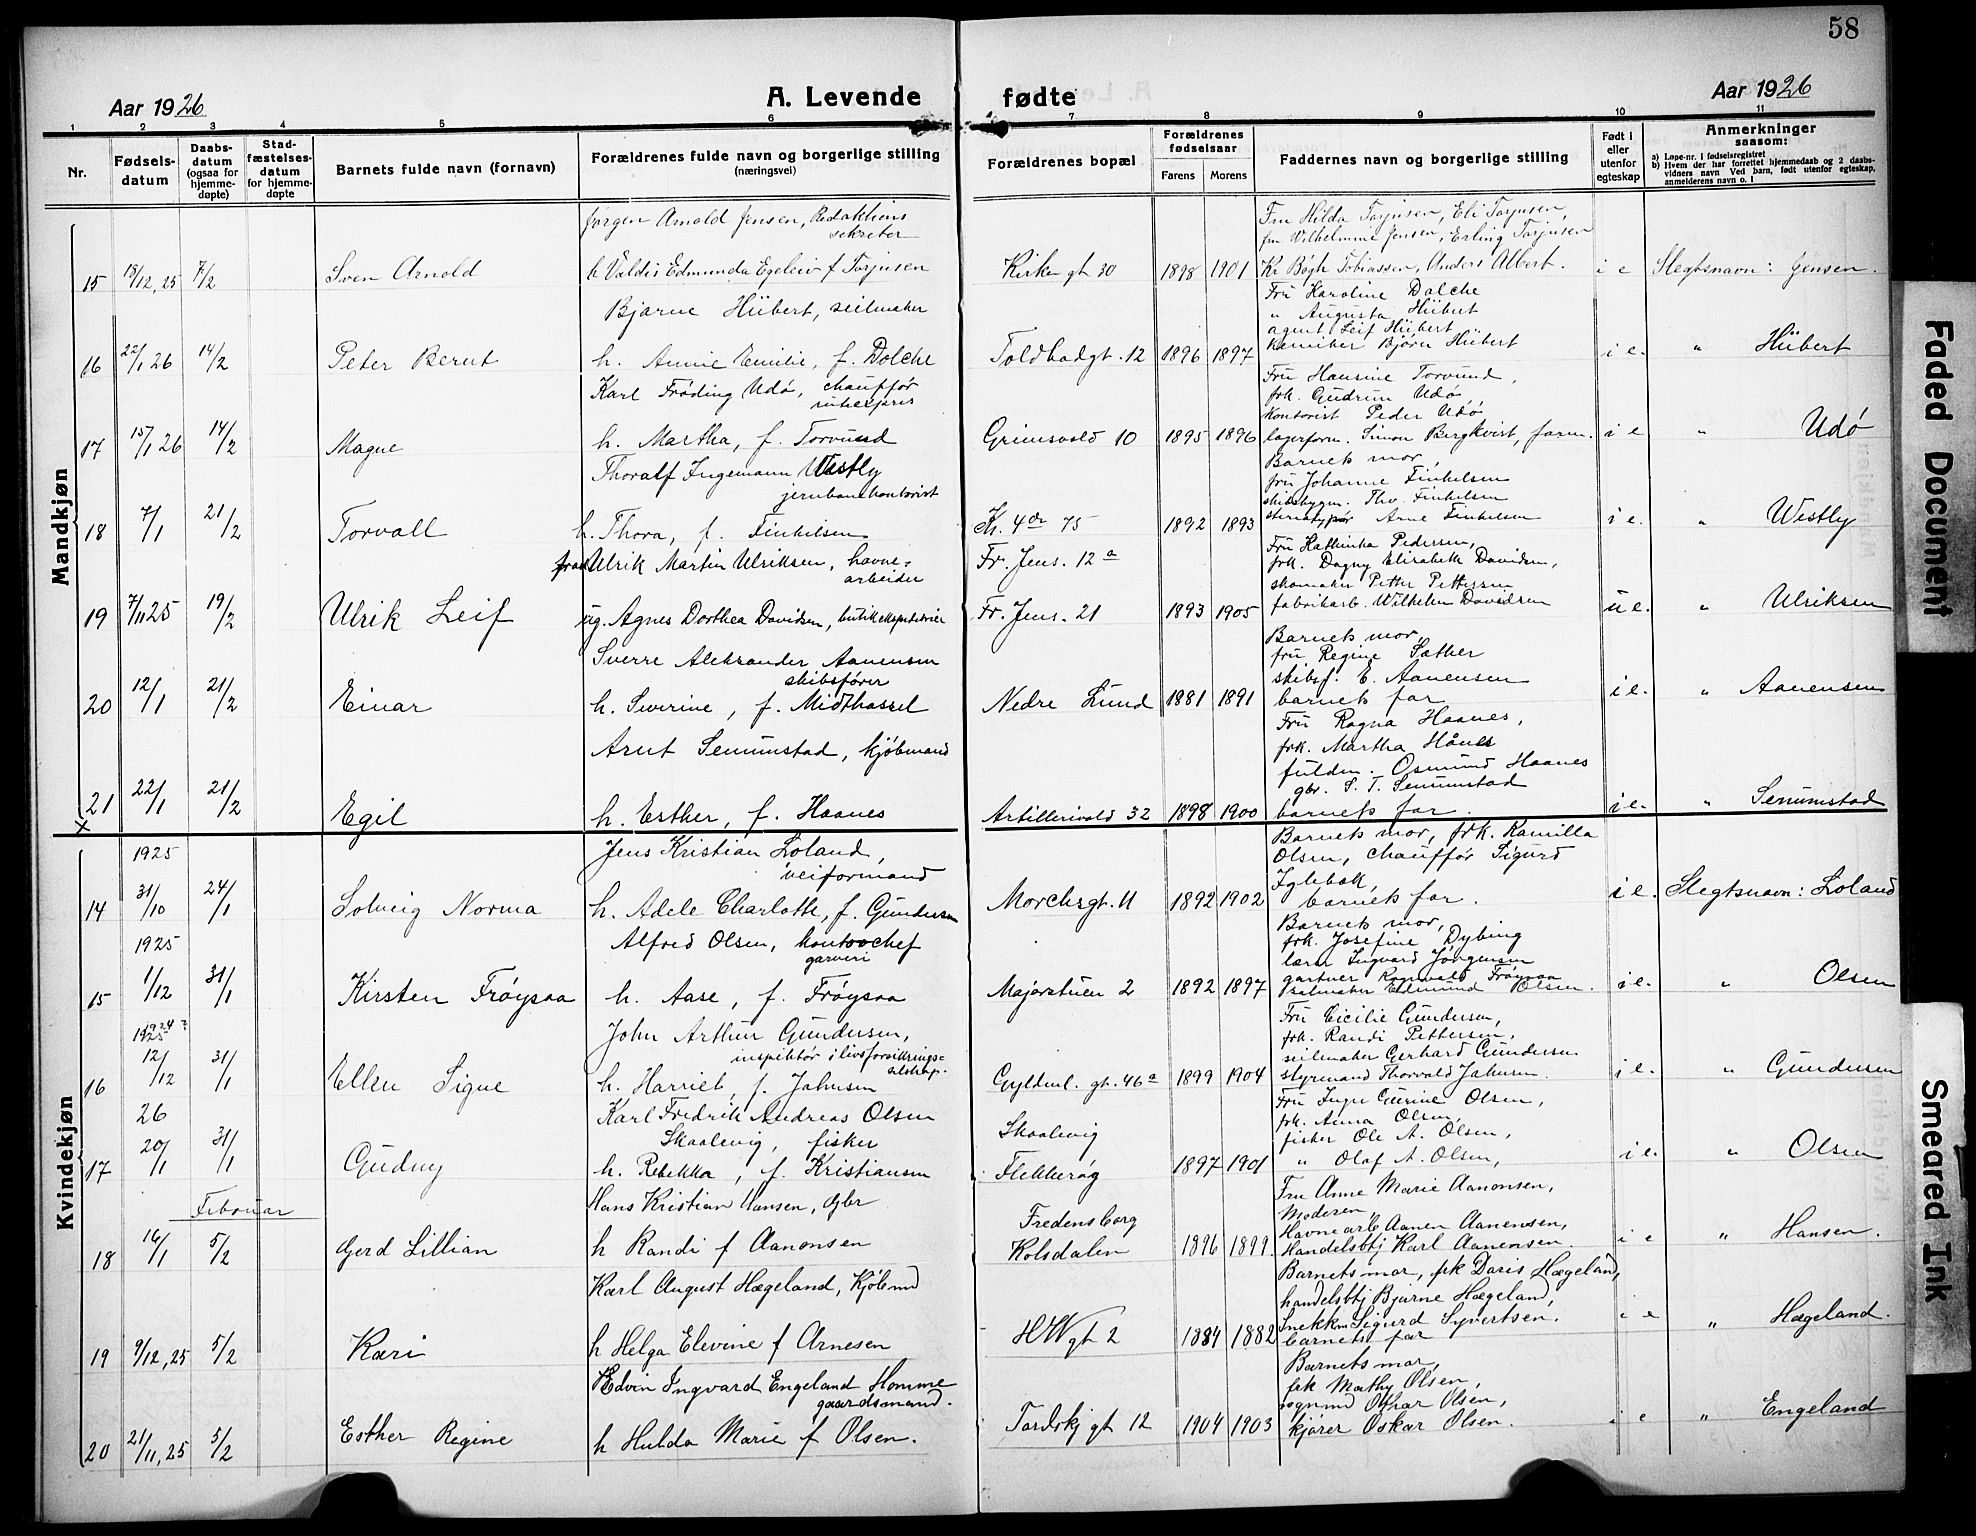 58
Aar 1926
A. Levende fødte
Aar 1926
1 2 3 4 5 6 7 8 9 10 11
Nr.
Fødsels-
datum
Daabs-
datum
(ogsaa for
hjemme-
døpte)
Stad-
fæstelses-
datum
for hjemme-
døpte
Barnets fulde navn (fornavn)
Forældrenes fulde navn og borgerlige stilling
(næringsvei)
Forældrenes bopæl
Forældrenes
fødselsaar
Farens Morens
Faddernes navn og borgerlige stilling
Født i
eller
utenfor
egteskap
Anmerkninger
saasom:
a) Løpe-nr. i fødselsregistret
b) Hvem der har forrettet hjemmedaab og 2 daabs-
vidners navn Ved barn, født utenfor egteskap,
anmelderens navn o. l
Mandkjøn
15 18/12, 25 7/2 Sven Arnold
Jørgen Arnold Jensen, Redaktions
sekretær
h Valdis Edmunda Egeleiv f Torjusen
Kirkegt 30 1898 1901
Fru Hilda Torjusen, Eli Torjusen,
fru Wilhelmine Jensen, Erling Torjusen
Kr Bøgh Tobiassen, Anders Albert.
i e Slegtsnavn: Jensen.
16 22/1 26 14/2 Peter Bernt
Bjarne Hübert, seilmaker
h. Annie Emilie, f. Dolche
Toldbodgt. 12 1896 1897
Fru Karoline Dolche
" Augusta Hübert
agent Leif Hübert
Bjørn Hübert
i e. " Hübert
17 15/1 26 14/2 Magne
Karl Frøding Udø, chauffør
h. Martha, f. Torvund
Grimsvold 10 1895 1896
Fru Hansine Torvund,
frk. Gudrun Udø,
kontorist Peder Udø,
lagerform. Simon Bergkvist, farm.
i e " Udø
18 7/1 21/2 Torvall
Thoralf Ingemann Westly
jernbanekontorist
h. Thora, f. Finkelsen
Kr. 4des 75 1892 1893
Barnets mor,
fru Johanne Finkelsen
skibsbygm. Thv. Finkelsen
stereotypør Arne Finkelsen
i e. " Westly
19 7/11 25 19/2 Ulrik Leif
Ulrik Martin Ulriksen, havne=
arbeider
ug. Agnes Dorthea Davidsen, butikekspeditrise
Fr. Jens. 12a
Fr. Jens. 21 1893 1905
Fru Kathinka Pedersen,
frk. Dagny Elisabeth Davidsen,
skomaker Petter Pettersen
fabrikarb. Wilhelm Davidsen
u e. " Ulriksen
20 12/1 21/2 Einar
Sverre Aleksander Aanensen
skibsfører
h. Severine, f. Midthassel
Nedre Lund 1881 1891
Barnets mor,
fru Regine Sæther
skibsf. E. Aanensen
barnets far
i e. " Aanensen
21 22/1 21/2 Egil
x
Arnt Senumstad, kjøbmand
h. Esther, f. Haanes
Artillerivold 32 1898 1900
Fru Ragna Haanes,
frk. Martha Hånes
fuldm. Osmund Haanes
gbr. S. T. Senumstad
barnets far.
i e. " Senumstad
Kvindekjøn
14 1925 31/10 24/1 Solveig Norma
Jens Kristian Loland,
veiformand
h. Adele Charlotte, f. Gundersen
Morchsgt. 11 1892 1902
Barnets mor, frk. Kamilla
Olsen, chauffør Sigurd
Iglebæk,
barnets far.
i e. Slegtsnavn: Loland
15 1925 1/12 31/1 Kirsten Frøysaa
Alfred Olsen, kontorchef
garveri
h. Aase, f. Frøysaa
Majorstuen 2 1892 1897
Barnets mor,
frk. Josefine Dybing
lærer Ingvard Jørgensen
gartner Ragnvald Frøysaa
Edmund Olsen.
i e. " Olsen
16 1924? 1925 12/12 31/1 Ellen Signe
John Arthur Gundersen,
inspektør i livsforsikrings=
selskap.
h. Harriet, f. Jahnsen
Gyldenl. gt. 46a 1899 1904
Fru Cicilie Gundersen,
frk. Randi Pettersen,
seilmaker Gerhard Gundersen
styrmand Thorvald Jahnsen.
i e. " Gundersen
17 26 20/1 31/1 Gudny
Karl Fredrik Andreas Olsen
Skaalevig, fisker
h. Rebekka, f. Kristiansen
Skaalevig
Flekkerøy 1897 1901
Fru Inger Gurine Olsen,
frk. Anna Olsen,
fisker Ole A. Olsen,
" Olaf A. Olsen,
i e. " Olsen
Februar
18 16/1 5/2 Gerd Lillian
Hans Kristian Hansen, Gbr
h Randi f Aanonsen
Fredensborg
Kolsdalen 1896 1899.
Fru Anne Marie Aanonsen,
Moderen,
Havnearb Aanen Aanensen,
Handelsbtj Karl Aanensen.
i e " Hansen.
19 9/12, 25 5/2 Kari
Karl August Hægeland, Kjøbmd
h Helga Elevine f Arnesen
HWgt 2 1884 1882
Barnets mor, frk Doris Hægeland,
handelsbtj Bjarne Hægeland,
Snekkm Sigurd Syvertsen.
barnets far
i e " Hægeland.
20 21/11, 25 5/2 Esther Regine
Edvin Ingvard Engeland Homme
gaardsmand.
h Hulda Marie f Olsen.
Tordskj gt 12 1904 1903
Barnets mor,
frk Mathy Olsen,
Othar Olsen,
kjører Oskar Olsen.
i e " Engeland
Faded Document
Smeared Ink